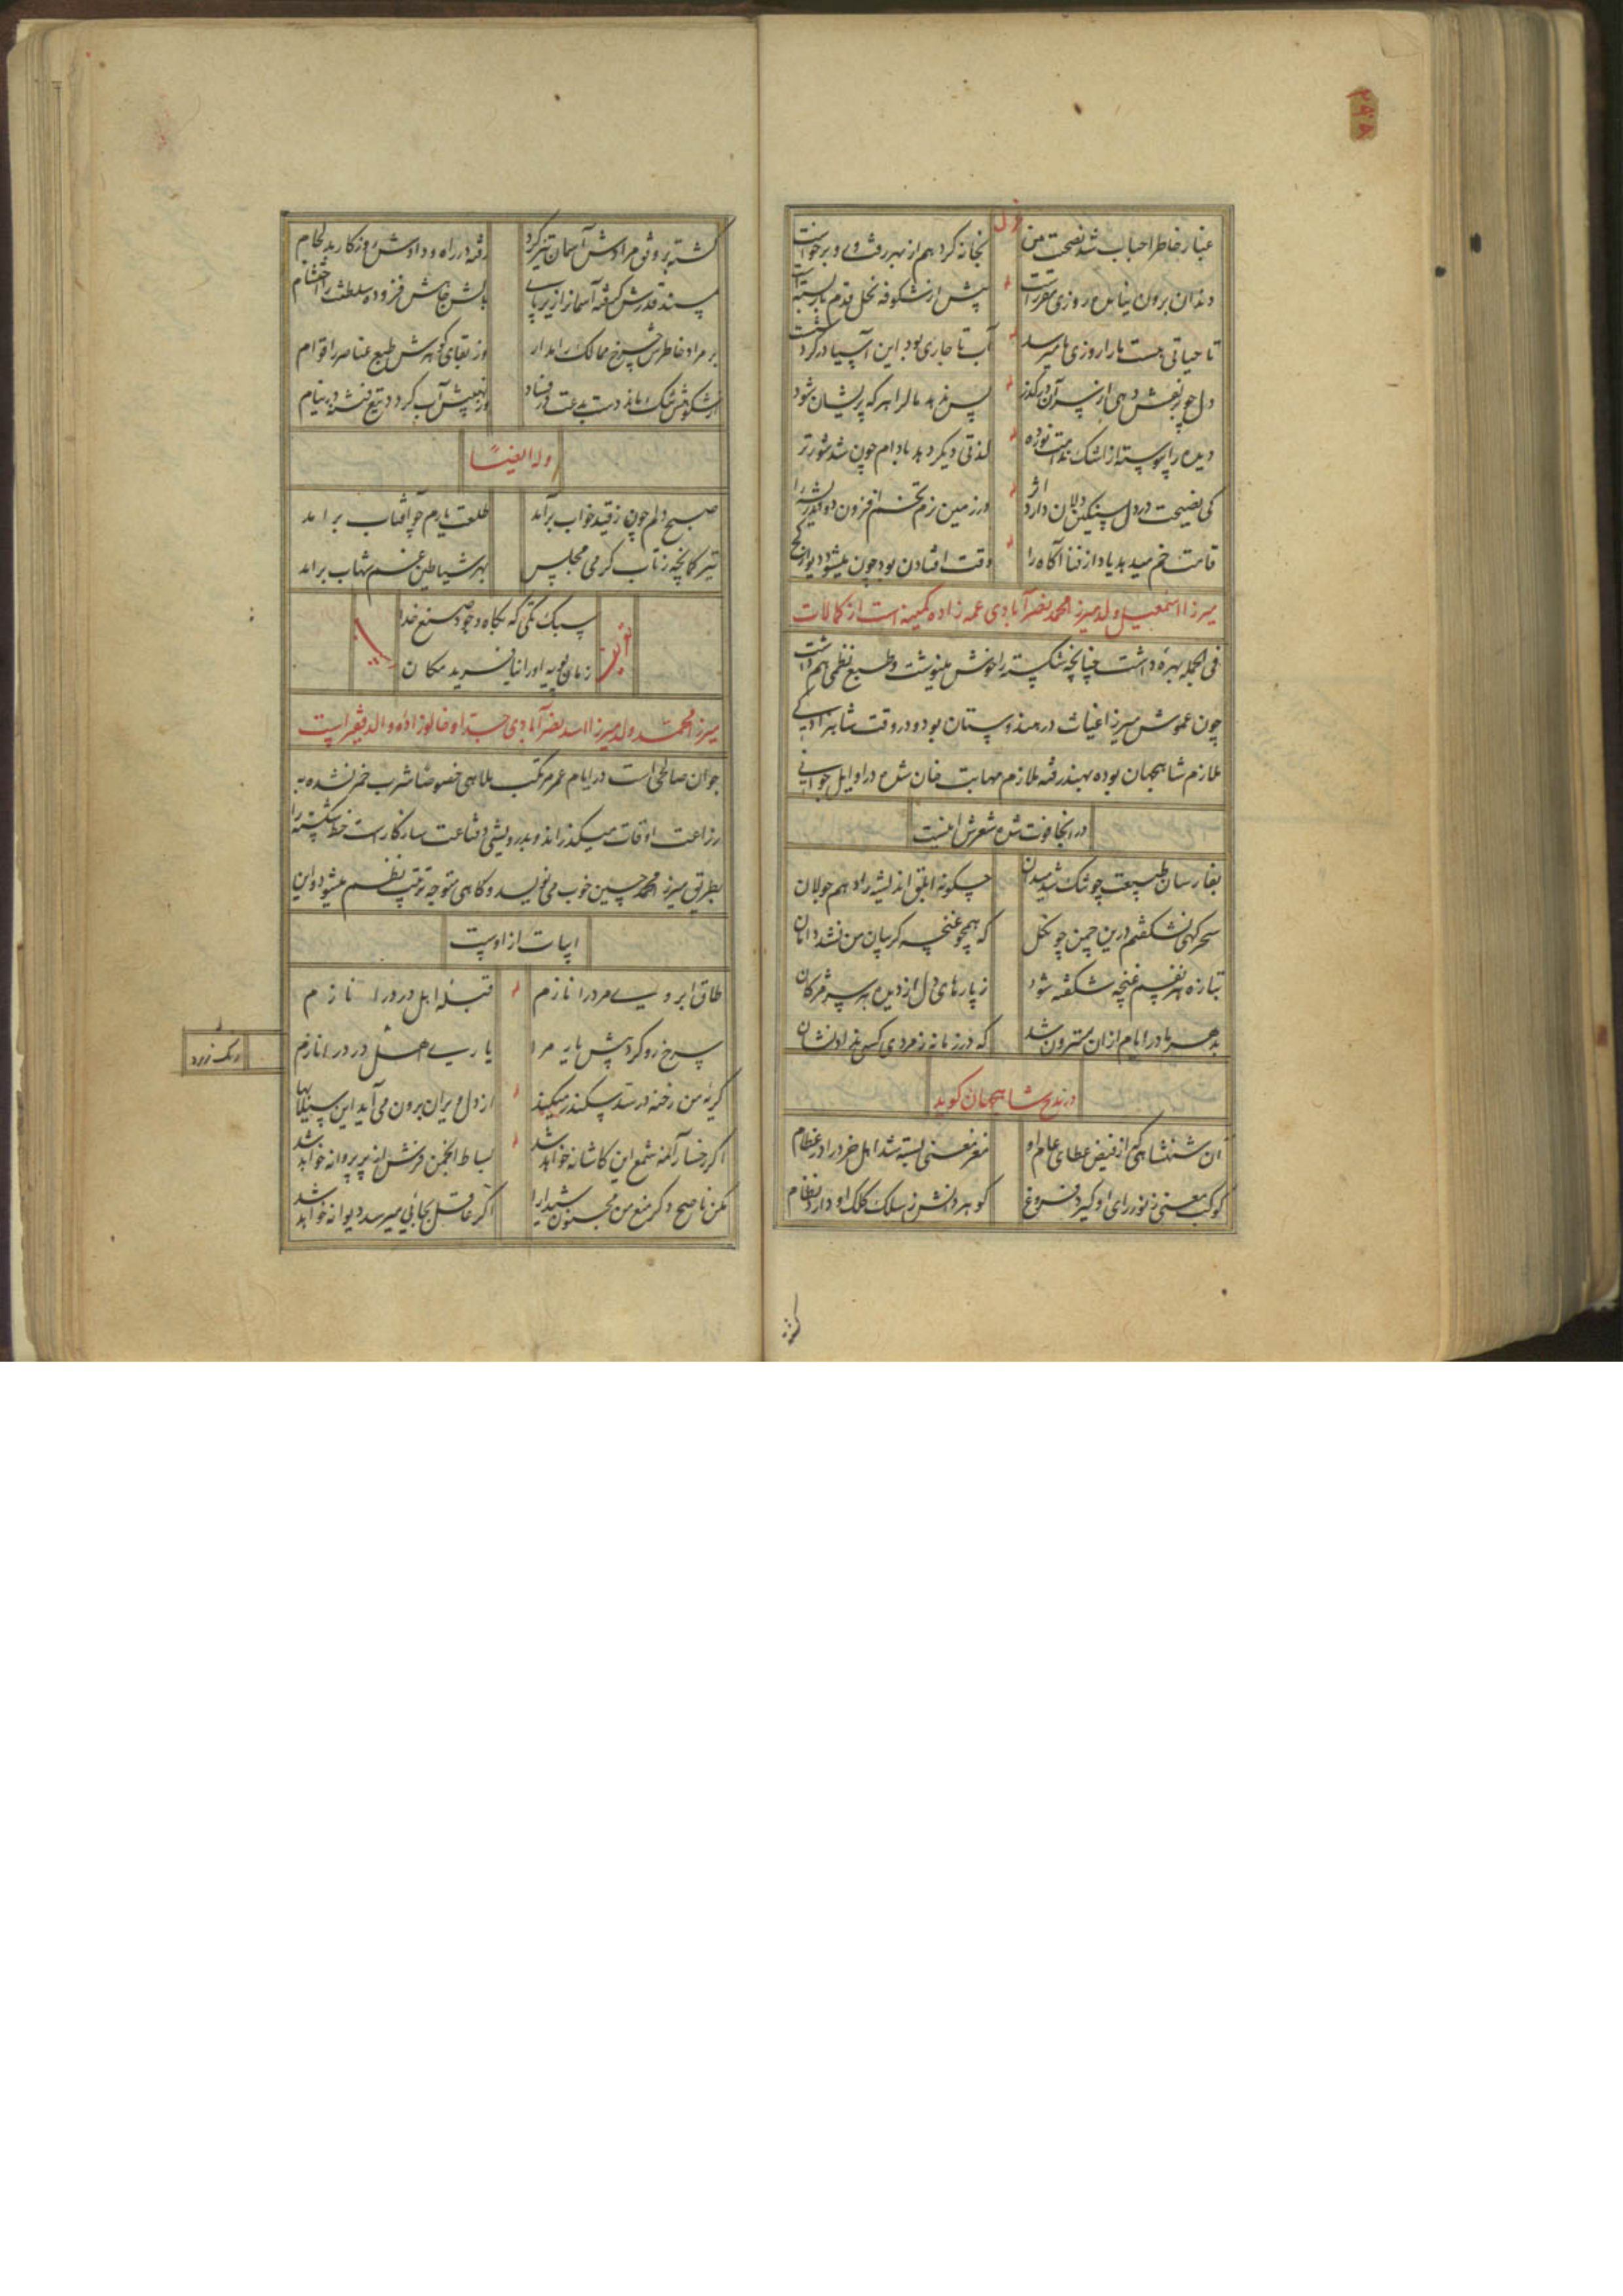 ۲۹۸
غبار خاطر احباب شد نصیحت من
بجا نکرد هم از بهر رفت و برخواست
دندان برون نیامده روزی مقرر است
پیش از شکوفه نخل قدم بار بسته است
تا حیاتی هست ما را روزی ما میرسد
آب تا جاری بود این آسیا در گردشت
دل چو زنعش دهی از سر آن در گذر
پس ندهد مال را هر که پریشان شود
دیده را پیوسته از اشک ندامت
لذتی دیگر دهد بادام چون شد شورتر
کی نصیحت در دل سنگین دلان دارد اثر
در زمین نرم تخم افزون دواند ریشه را
قامت خم میدهد یاد از فنا آگاه را
وقت افتادن بود چون میشود دیوار کج
میرزا اسمعیل ولد میرزا محمد نصرآبادی عمه زاده کمینه است از کمالات
فی الجمله بهره داشت چنانچه شکسته را خوش مینوشت و طبع نظمی هم داشت
چون عموش میرزا غیاث در هندوستان بود و در وقت شاهزادگی
ملازم شاهجهان بوده بهند رفته ملازم مهابت خان شده در اوایل جوانی
در آنجا فوت شده شعرش اینست
بفارسان طبیعت چو تنک شد میدان
چگونه ابلق اندیشه را دهم جولان
سحرگهی نشکفتم درین چمن چو گل
که همچو غنچه گریبان من نشد دامان
بتازه هر نفسم غنچه شکفته شود
ز پارهای دل از دیده بر سر مژگان
بدهر مادر ایام از آن سترون شد
که در زمانه ز مردی کسی نداد نشان
در مدح شاهجهان گوید
آن شهنشاهی که از فیض عطای عام او
مغز معنی بسته شد اهل خرد را در عظام
کوکب معنی ز نور رای او گیرد فروغ
گوهر دانش ز سلک کلک او دارد نظام
گشته بر وفق مرادش آسمان تیزگرد
رفته در راه ودادش روزگار بد لجام
مسند قدرش گرفته آسمان از زیر پای
بالش جاهش فزوده سلطنت را احتشام
بر مراد خاطرش چرخ ممالک را مدار
وز بقای گوهرش طبع عناصر را قوام
از شکوهش خشک ماند دست بدعت در فساد
وز نهیبش آب گردد تیغ فتنه در نیام
وله ایضاً
صبح دلم چون ز قید خواب برآمد
طلعت یارم چو آفتاب برآمد
تیر کمانچه ز تاب گرمی مجلس
بهر شیاطین غم شهاب برآمد
تعریف
سبک تکی که بگاه وجود صنع خدا
اسب
زمان پویه او را نیافرید مکان
میرزا محمد ولد میرزا اسد نصرآبادی جد او خالوزاده والد فقیر است
جوان صالحی است در ایام عمر مرتکب ملاهی خصوصا شرب خمر نشده به
زراعت اوقات میگذراند و بدرویشی و قناعت سازگار است خط شکسته را
بطریق میرزا محمد حسین خوب می نویسد و گاهی متوجه ترتیب نظم میشود و این
ابیات از اوست
طاق ابروی مرد را نازم
قبله اهل درد را نازم
سرخ رو کرد پیش یار مرا
یاری اهل درد را نازم
رنگ زرد
گریه من رخنه در سد سکندر میکند
از دل ویران برون می آید این سیلابها
اگر رخسار آلمنه شمع این کاشانه خواهد شد
بساط انجمن فرش از پر پروانه خواهد شد
مکن ناصح دگر منع من مجنون شیدا را
اگر عاقل بجائی میرسد دیوانه خواهد شد